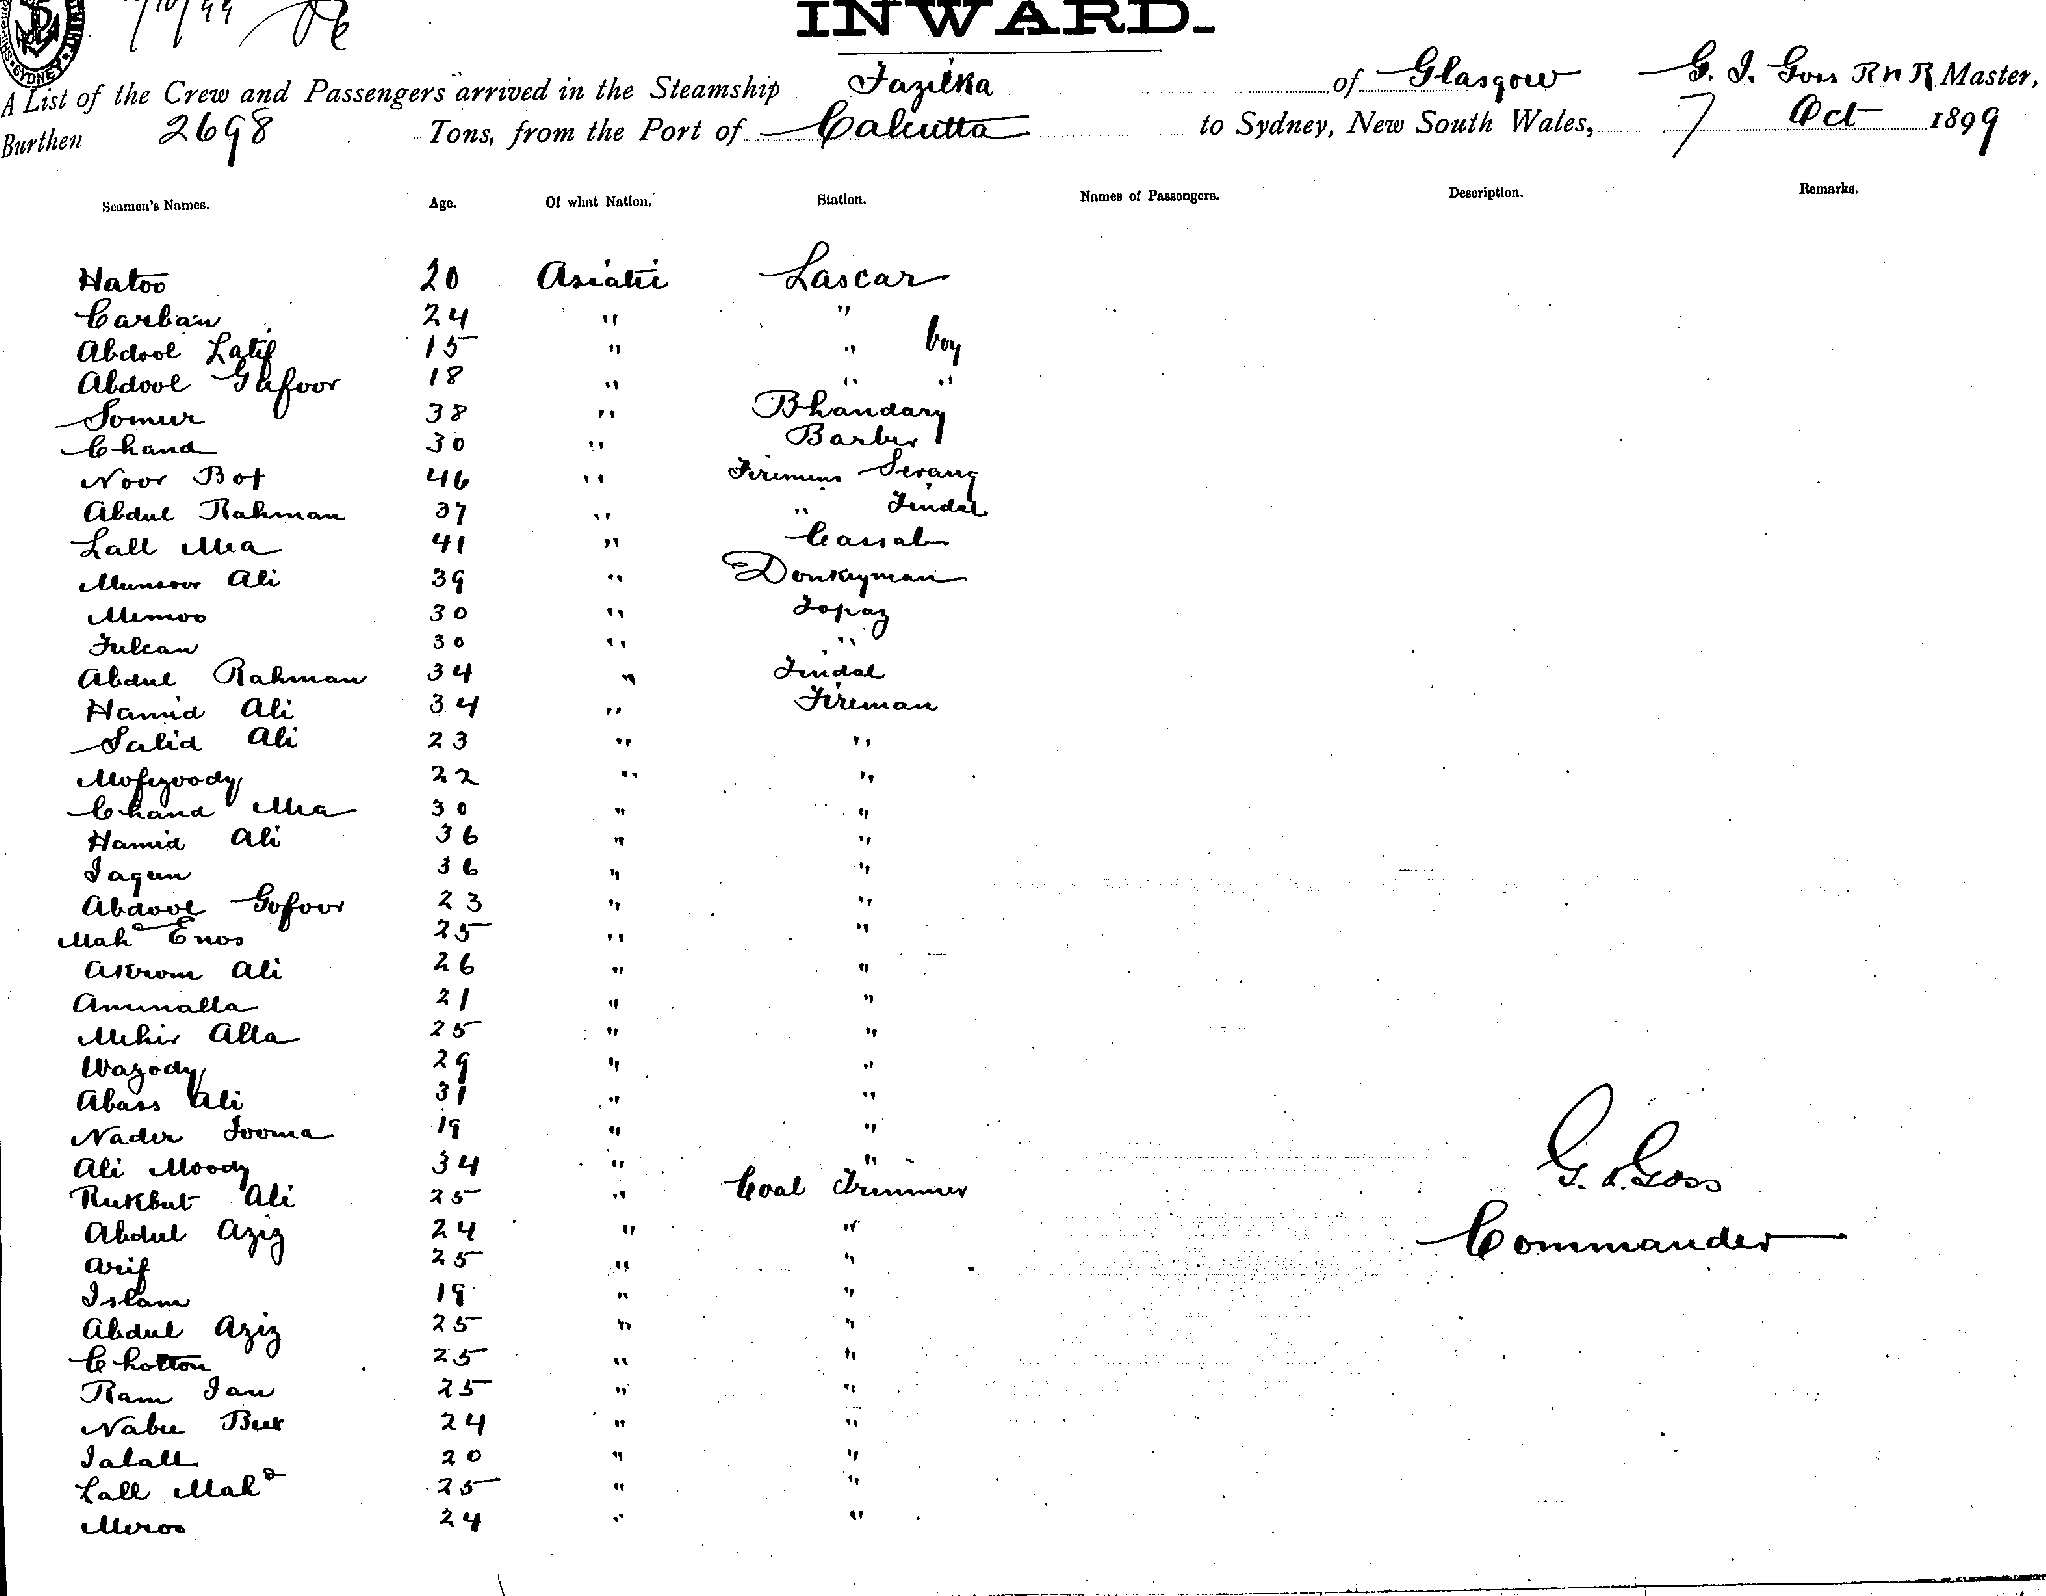 7/10/99
SYDNEY
INWARD.
A List of the Crew and Passengers arrived in the Steamship Fazilka of Glasgow G. I. Goss RNR Master,
Burthen 2698 Tons, from the Port of Calcutta to Sydney, New South Wales, 7 Oct 1899
Seamen's Names. Age. Of what Nation. Station. Names of Passengers. Description. Remarks.
Hatoo 20 Asiatic Lascar
Carban 24 " "
Abdool Latif 15 " " boy
Abdool Gafoor 18 " " "
Somur 38 " Bhandary
Chand 30 " Barber
Noor Bot 46 " Firemens Serang
Abdul Rahman 37 " " Tindal
Lall Mea 41 " Cassab
Munsoor Ali 39 " Donkeyman
Memoo 30 " Topaz
Fulcan 30 " "
Abdul Rahman 34 " Tindal
Hamid Ali 34 " Fireman
Salid Ali 23 " "
Mofizoody 22 " "
Chand Mea 30 " "
Hamid Ali 36 " "
Jaqun 36 " "
Abdool Gofoor 23 " "
Mahd Enos 25 " "
Akrom Ali 26 " "
Amunalla 21 " "
Mehir Alla 25 " "
Wazody 29 " "
Abass Ali 31 " "
Nader Jooma 19 " "
Ali Moody 34 " "
Rukbut Ali 25 " Coal Trimmer
Abdul Aziz 24 " "
Arif 25 " "
Islam 19 " "
Abdul Aziz 25 " "
Chotton 25 " "
Ram Jan 25 " "
Nabu Bux 24 " "
Jalall 20 " "
Lall Mahd 25 " "
Meroo 24 " "
G. I. Goss
Commander